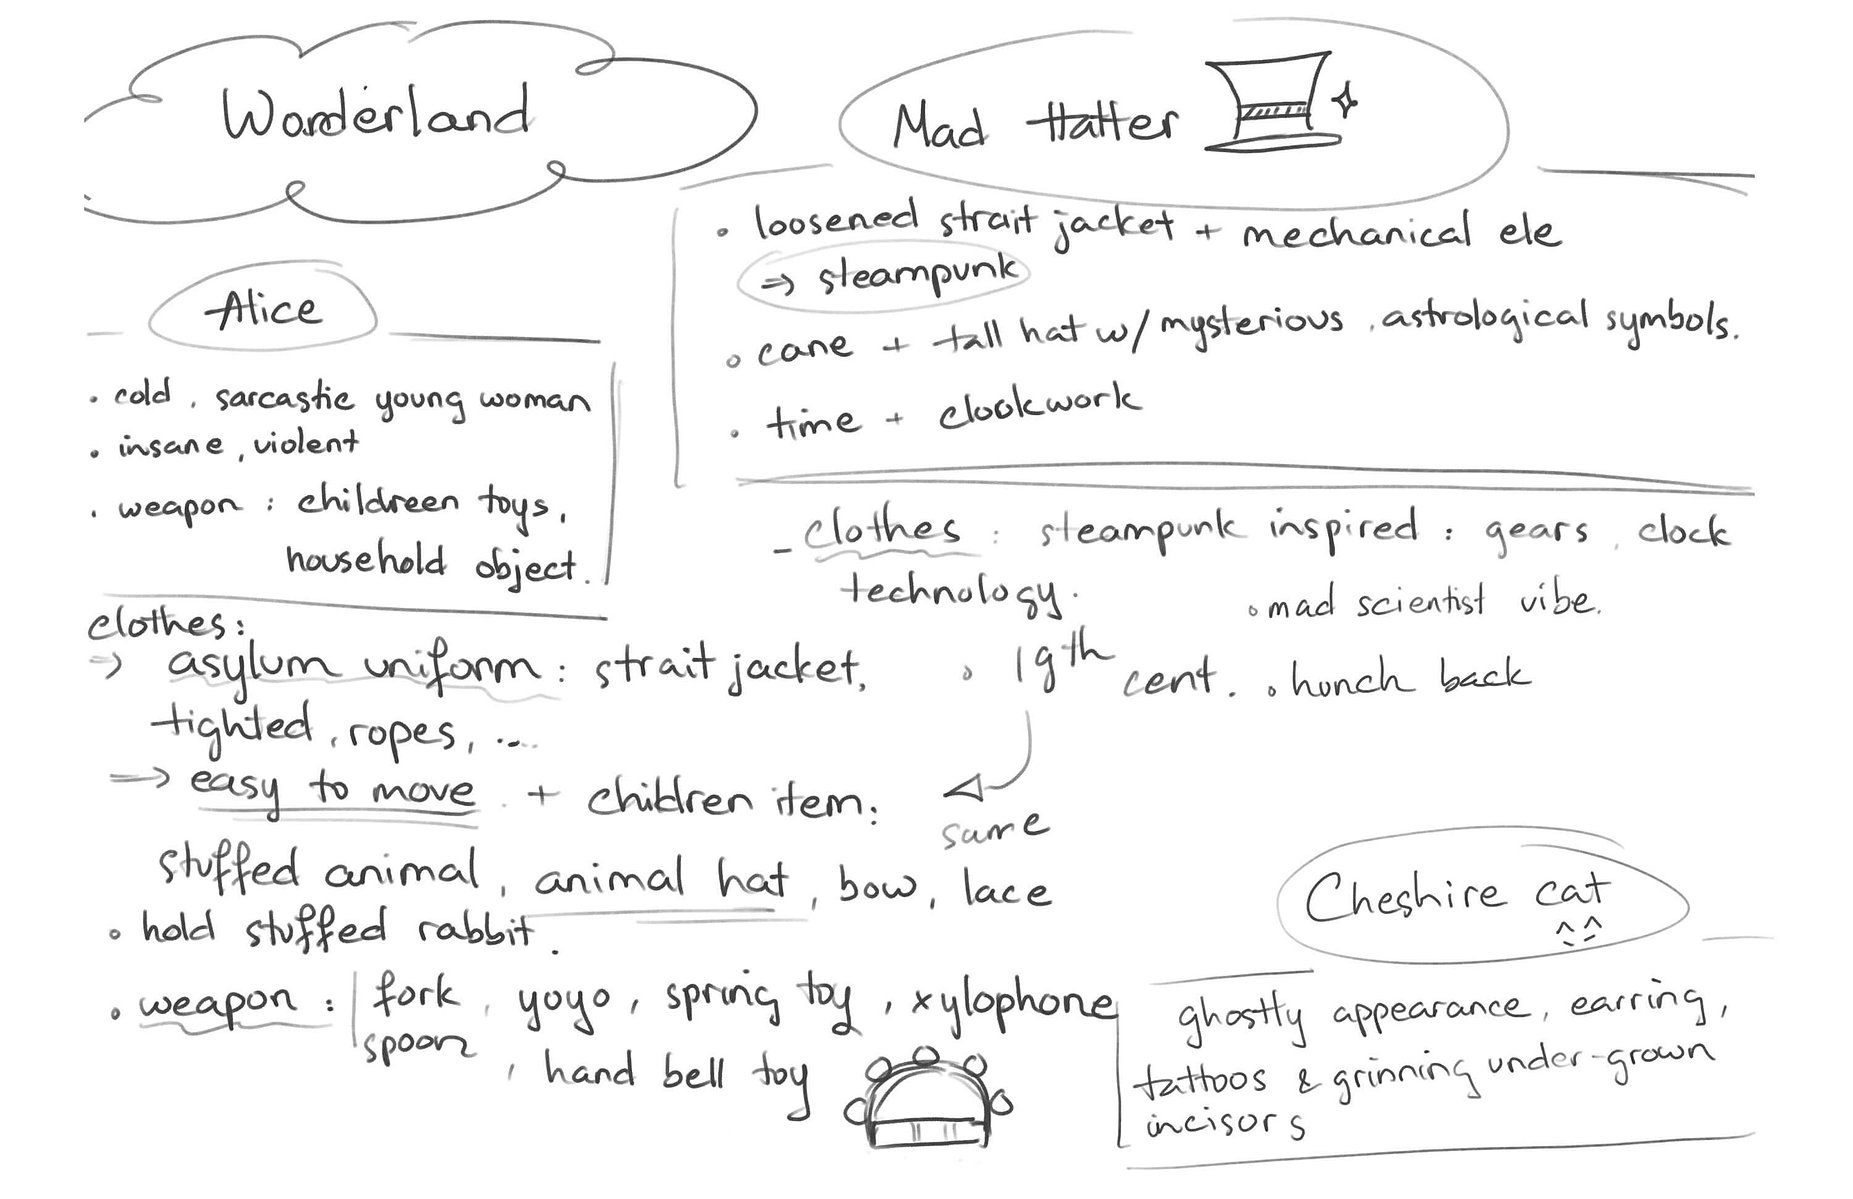 Wonderland
Alice
• cold, sarcastic young woman
• insane, violent
• weapon : childreen toys,
household object.
clothes:
⇒ asylum uniform : strait jacket,
tighted, ropes, ...
⇒ easy to move + children item:
stuffed animal, animal hat, bow, lace
• hold stuffed rabbit.
• weapon : fork, yoyo, spring toy, xylophone
spoon, hand bell toy
Mad Hatter
• loosened strait jacket + mechanical ele
⇒ steampunk
• cane + tall hat w/ mysterious, astrological symbols.
• time + clookwork
- clothes : steampunk inspired : gears, clock
technology.
• mad scientist vibe.
• 19th cent.
• hunch back
same
Cheshire cat
ghostly appearance, earring,
tattoos & grinning under-grown
incisors